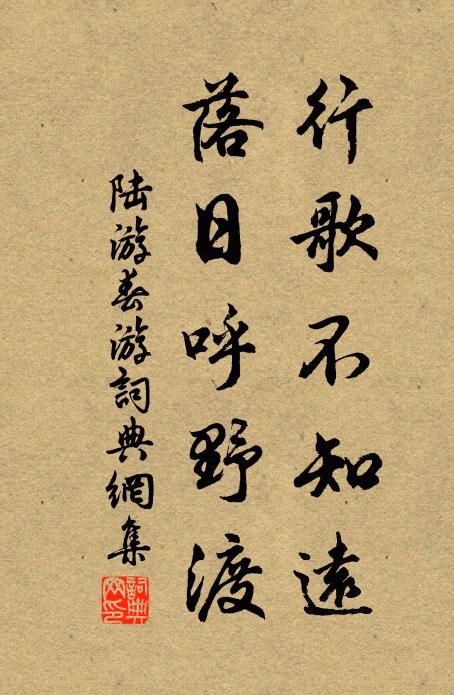 行歌不知遠
落日呼野渡
陆游春游詞典網集
詞典网印